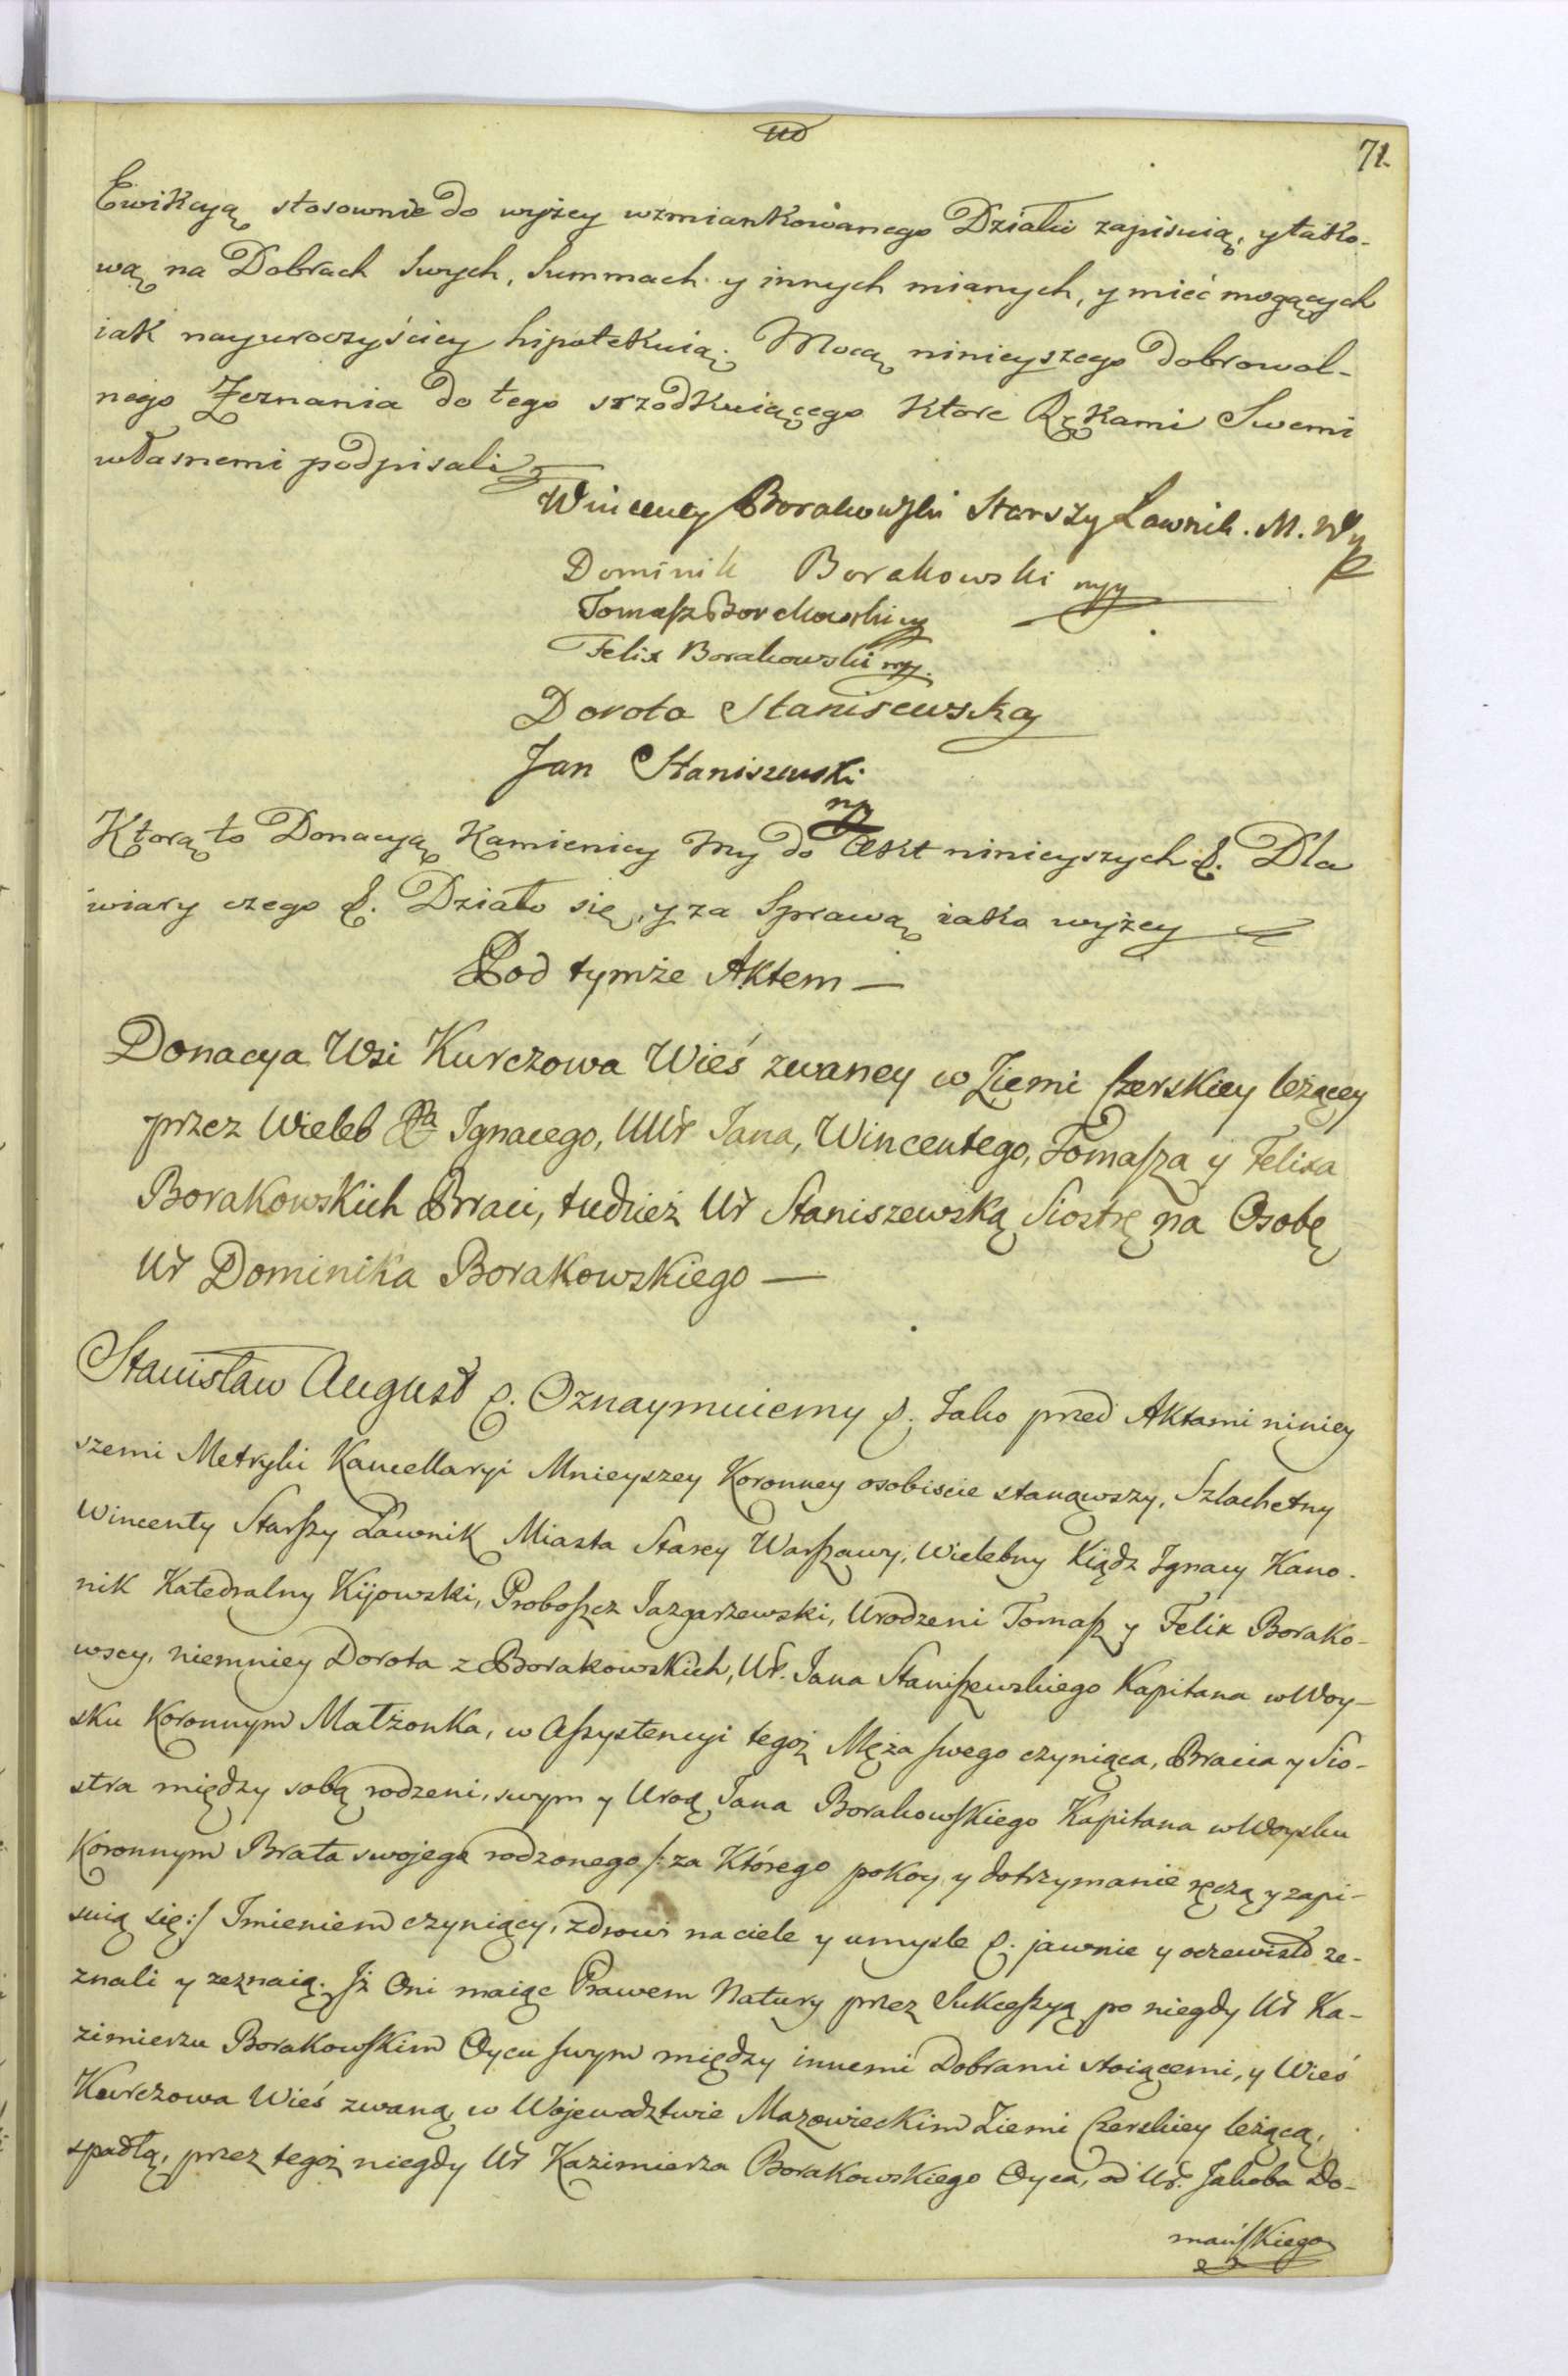 71.
Ewikcyą stosownie do wyżey wzmiankowanego Działu zapisuią, y tako-
wą na Dobrach swych, Summach y innych mianych, y mieć mogących
iak nayuroczyściey hipotekuią. Mocą ninieyszego dobrowol-
nego Zeznania do tego srzodkuiącego ktore Rękami Swemi
własnemi podpisali
Wincenty Borakowski Starszy Ławnik. M. W
Dominik Borakowski mp
Tomasz Borakowski mp
Felix Borakowski mp.
Dorota Staniszewska
Jan Staniszewski
mp
Ktorą to Donacyą Kamienicy My do Akt ninieyszych &. Dla
wiary czego &. Działo się, y za Sprawą iako wyżey
Pod tymże Aktem —
Donacya Wsi Kurczowa Wieś zwaney w Ziemi Czerskiey leżącey
przez Wieleb Xa Ignacego, UUr Jana, Wincentego, Tomasza y Felixa
Borakowskich Braci, tudzież Ur Staniszewską Siostrę na Osobę
Ur Dominika Borakowskiego —
Stanisław August &. Oznaymuiemy &. Jako przed Aktami niniey
szemi Metryki Kancellaryi Mnieyszey Koronney osobiscie stanąwszy, Szlachetny
Wincenty Starszy Ławnik Miasta Starey Warszawy, Wielebny Xiądz Ignacy Kano-
nik Katedralny Kijowski, Proboszcz Jazgarzewski, Urodzeni Tomasz y Felix Borako-
wscy, niemniey Dorota z Borakowskich, Ur. Jana Staniszewskiego Kapitana w Woy-
sku Koronnym Małżonka, w Assystencyi tegoż Męża swego czyniąca, Bracia y Sio-
stra między sobą rodzeni, swym y Urod Jana Borakowskiego Kapitana w Woysku
Koronnym Brata swojego rodzonego /: za Którego pokoy y dotrzymanie ręczą y zapi-
suią się :/ Imieniem czyniący, zdrowi na ciele y umysle &. jawnie y oczewisto ze-
znali y zeznaią. Iż Oni maiąc Prawem Natury przez Sukcessyą po niegdy Ur Ka-
zimierzu Borakowskim Oycu swym między innemi Dobrami stoiącemi, y Wieś
Kurczowa Wieś zwaną w Wojewodztwie Mazowieckim Ziemi Czerskiey leżącą,
spadłą, przez tegoż niegdy Ur Kazimierza Borakowskiego Oyca, od Ur. Jakoba Do-
mańskiego